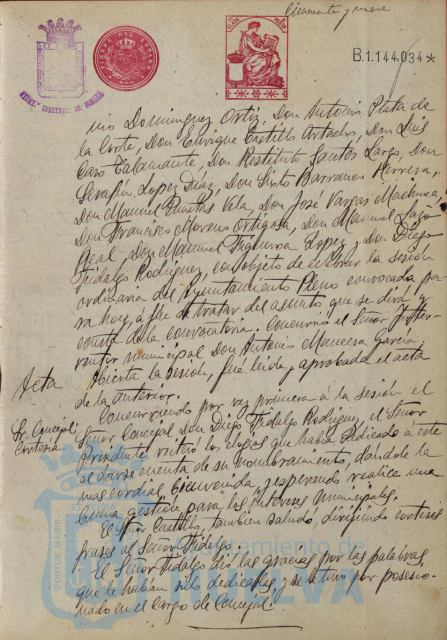 Cincuenta y nueve
B.1.144.034 *
nio Dominguez Ortiz, Don Antonio Plata de
la Corte, Don Enrique Castillo Artacho, Don Luis
Caso Talamante, Don Restituto Santos Largo, Don
Serafín Lopez Díaz, Don Sixto Barranco Herrera,
Don Manuel Puertas Vela, Don José Vargas Machuca,
Don Francisco Moreno Ortigosa, Don Manuel
Real, Don Manuel Figueroa Lopez y Don Diego
Hidalgo Rodriguez, con objeto de celebrar la sesión
ordinaria del Ayuntamiento Pleno convocada pa-
ra hoy, á fin de tratar del asunto que se dirá y
consta de la convocatoria. Concurrió el Señor Inter-
ventor municipal Don Antonio Mancera Garcia
Acta
Abierta la sesión, fué leida y aprobada el acta
de la anterior.
Sr. Concejal
Cortesía
Concurriendo por vez primera á la sesión el
Señor Concejal don Diego Hidalgo Rodriguez, el Señor
Presidente reiteró los elogios que había dedicado á este
al darse cuenta de su nombramiento, dandole la
mas cordial bienvenida y esperando realice una
buena gestión para los intereses municipales.
El Señor Castillo, tambien saludó, dirigiendo corteses
frases al Señor Hidalgo.
El Señor Hidalgo dió las gracias por las palabras
que le habian sido dedicadas, y se le tuvo por posesio-
nado en el cargo de Concejal.
Ayuntamiento de
HUELVA
PORTUS MARIS